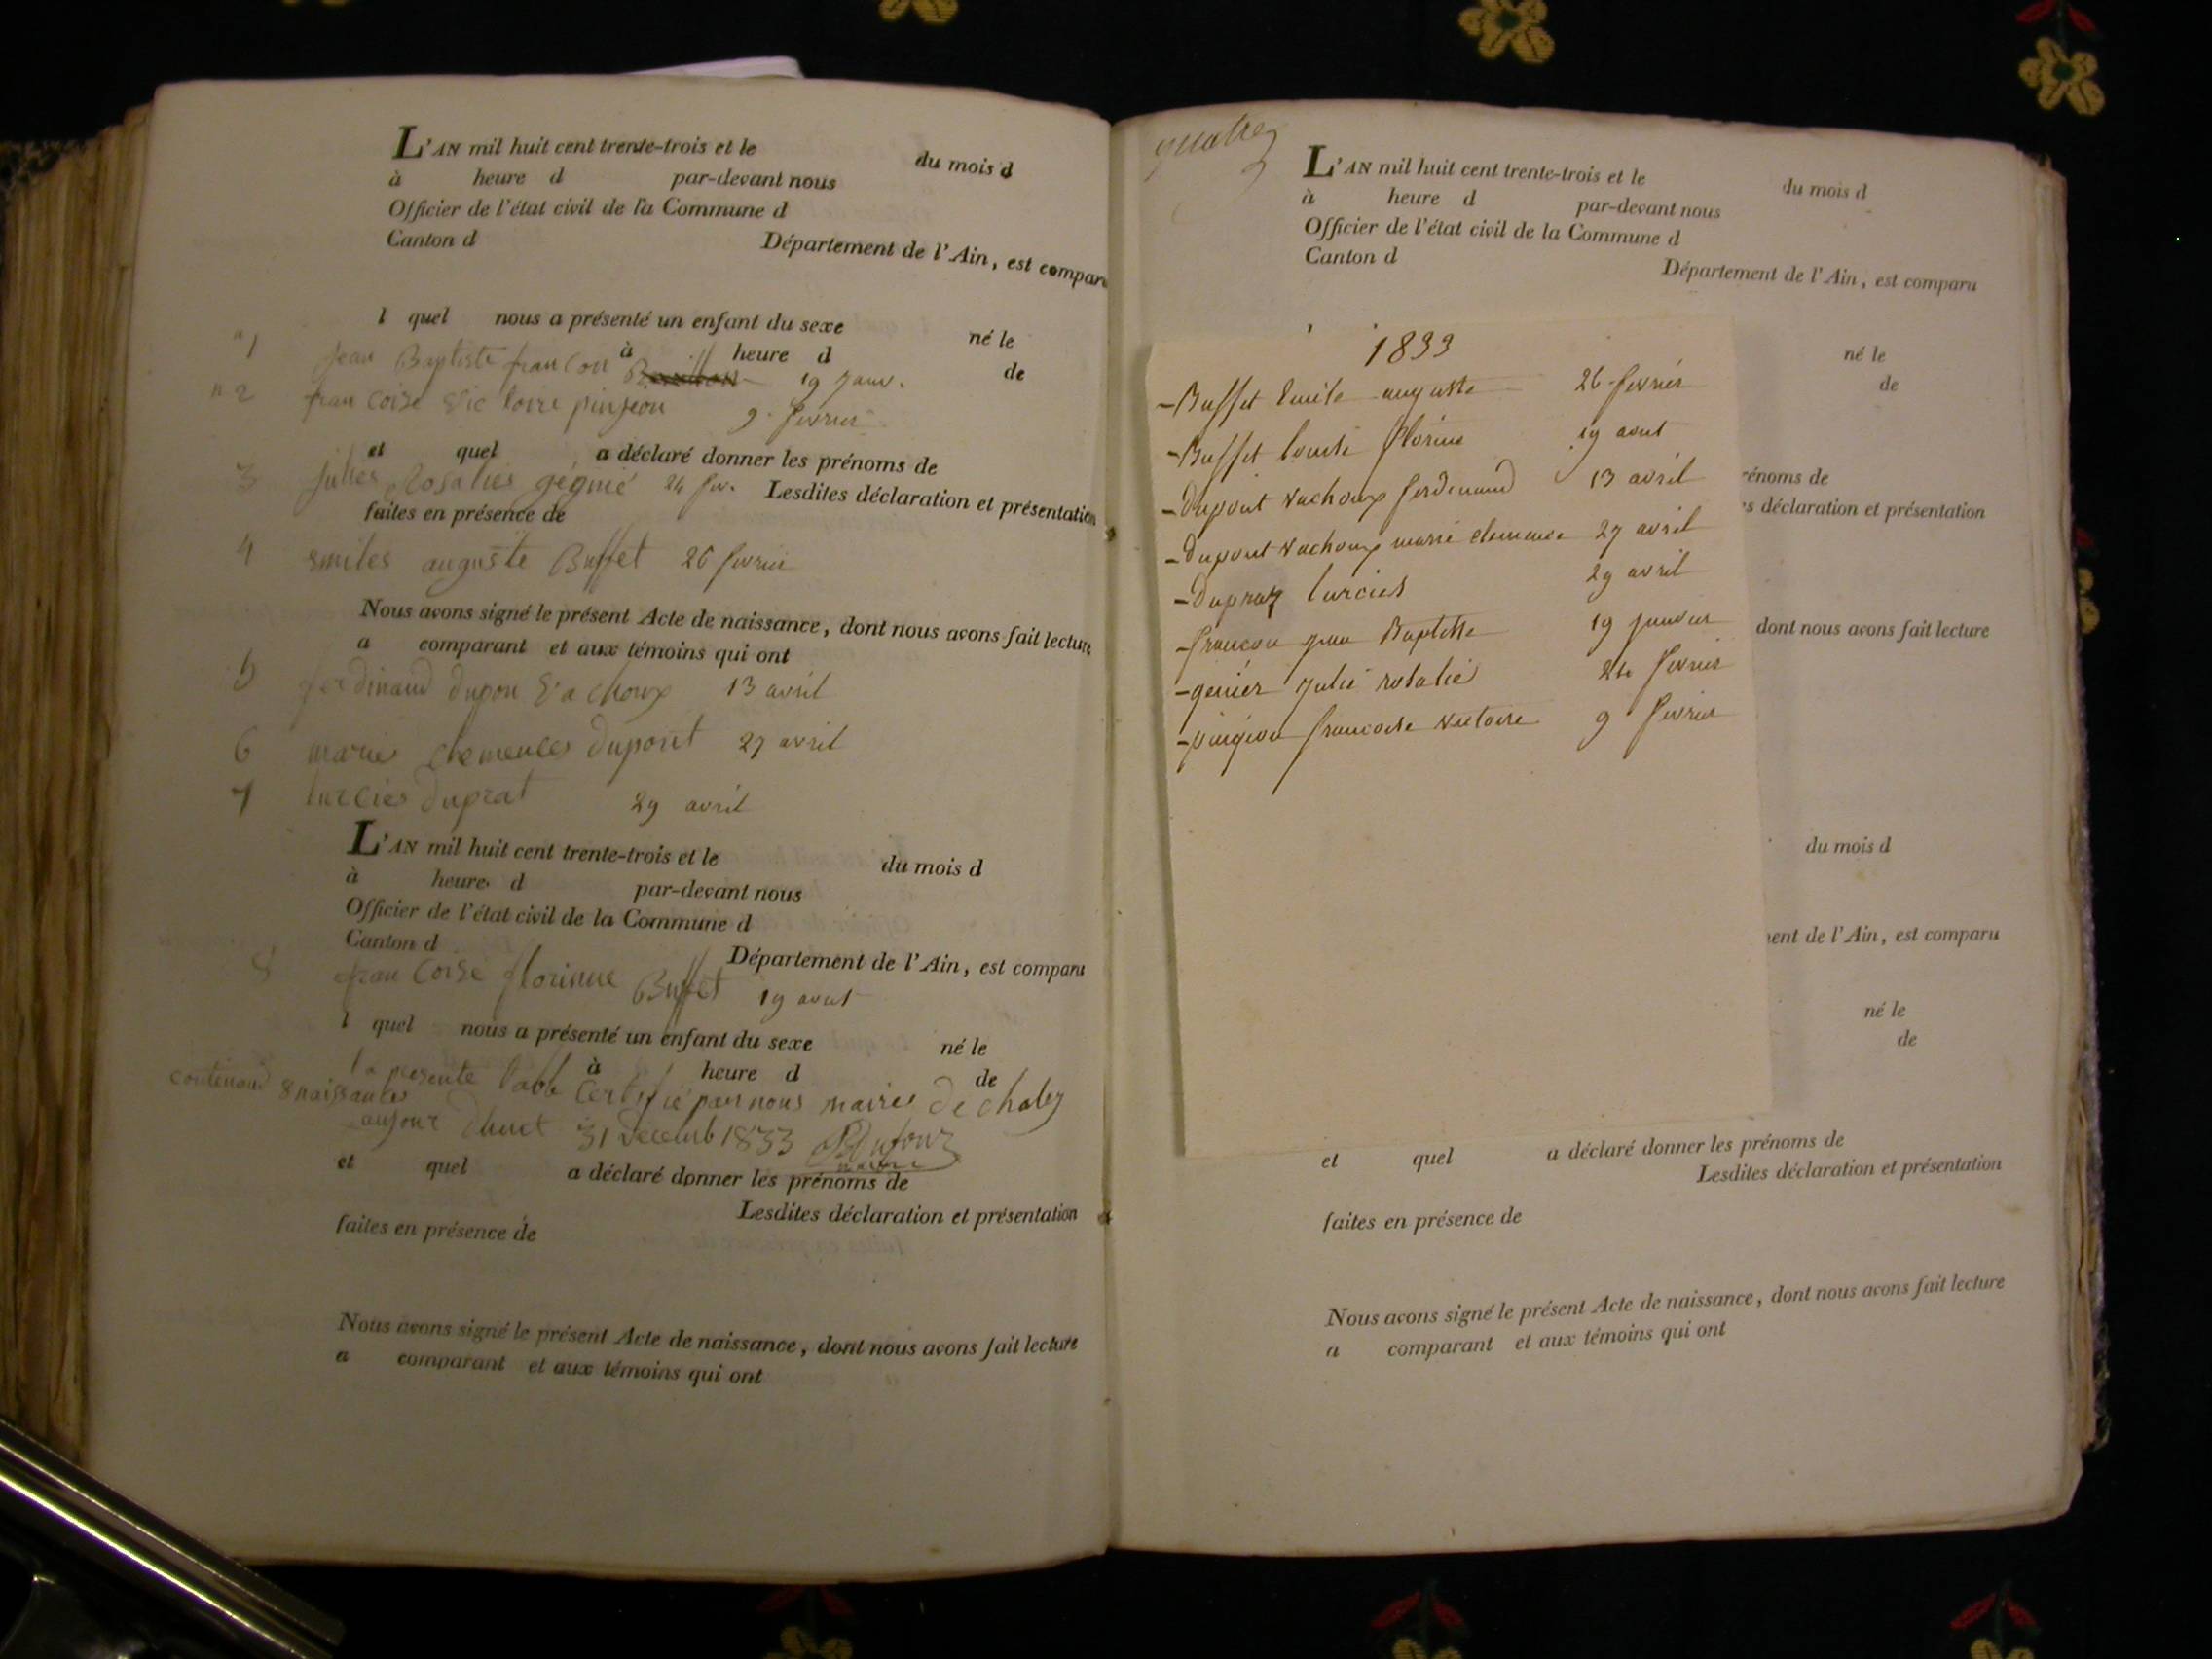 L'AN mil huit cent trente-trois et le du mois d
à heure d par-devant nous
Officier de l'état civil de la Commune d
Canton d Département de l'Ain, est comparu
l quel nous a présenté un enfant du sexe né le
à heure d de
n 1 jean Baptiste francon 19 janv.
n 2 francoise Victoire pinjeon 9 fevrier
et quel a déclaré donner les prénoms de
3 julies Rosalies gégnié 24 fev. Lesdites déclaration et présentation
faites en présence de
4 emiles auguste Buffet 26 fevrier
Nous avons signé le présent Acte de naissance, dont nous avons fait lecture
a comparant et aux témoins qui ont
5 ferdinand dupon Vachoux 13 avril
6 marie clemences dupont 27 avril
7 lurcies duprat 29 avril
L'AN mil huit cent trente-trois et le du mois d
à heure d par-devant nous
Officier de l'état civil de la Commune d
Canton d Département de l'Ain, est comparu
8 francoise florinne Buffet 19 aout
l quel nous a présenté un enfant du sexe né le
à heure d de
la presente table certifié par nous maire de chaley
contenant 8 naissantes
aujour dhuet 31 decemb 1833 Dufour
maire
et quel a déclaré donner les prénoms de
Lesdites déclaration et présentation
faites en présence de
Nous avons signé le présent Acte de naissance, dont nous avons fait lecture
a comparant et aux témoins qui ont
quatre
L'AN mil huit cent trente-trois et le du mois d
à heure d par-devant nous
Officier de l'état civil de la Commune d
Canton d Département de l'Ain, est comparu
né le
de
1833
- Buffet Emile auguste 26 fevrier
- Buffet louise florine 19 aout
- dupont vachoux ferdinand 13 avril
- dupont vachoux marie clemence 27 avril
- dupraz lurcies 29 avril
- francon jean Baptiste 19 janvier
- genier julie rosalie 24 fevrier
- pingeon francoise victoire 9 fevrier
rénoms de
s déclaration et présentation
dont nous avons fait lecture
du mois d
ent de l'Ain, est comparu
né le
de
et quel a déclaré donner les prénoms de
Lesdites déclaration et présentation
faites en présence de
Nous avons signé le présent Acte de naissance, dont nous avons fait lecture
a comparant et aux témoins qui ont